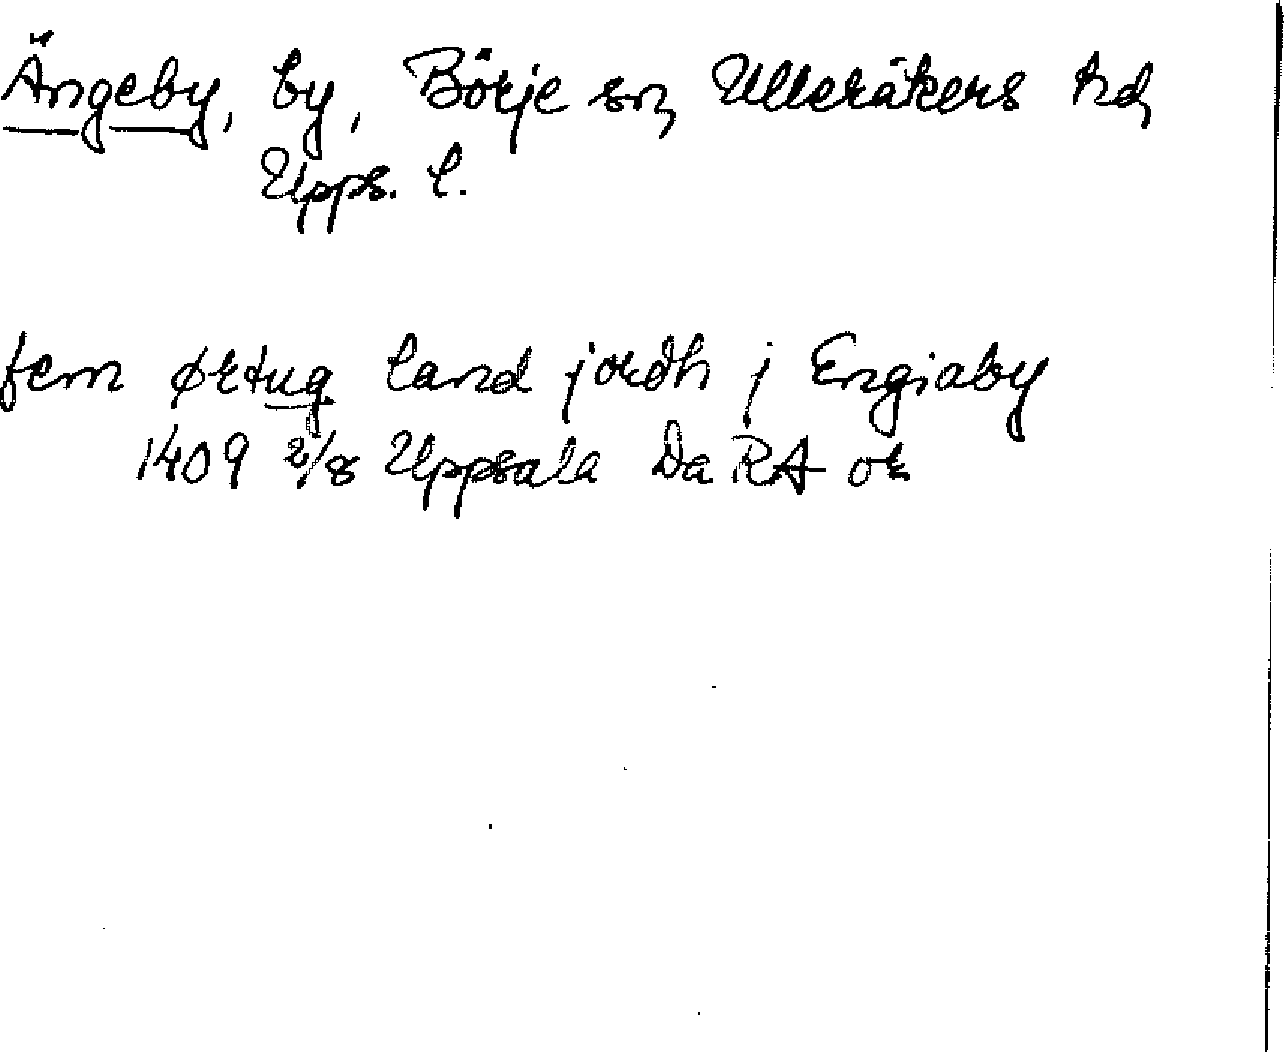 Ängeby, by, Börje sn, Ulleråkers hd,
Upps. l.
fem ørtug land jordh j Engiaby
1409 2/8 Uppsala Da RA or